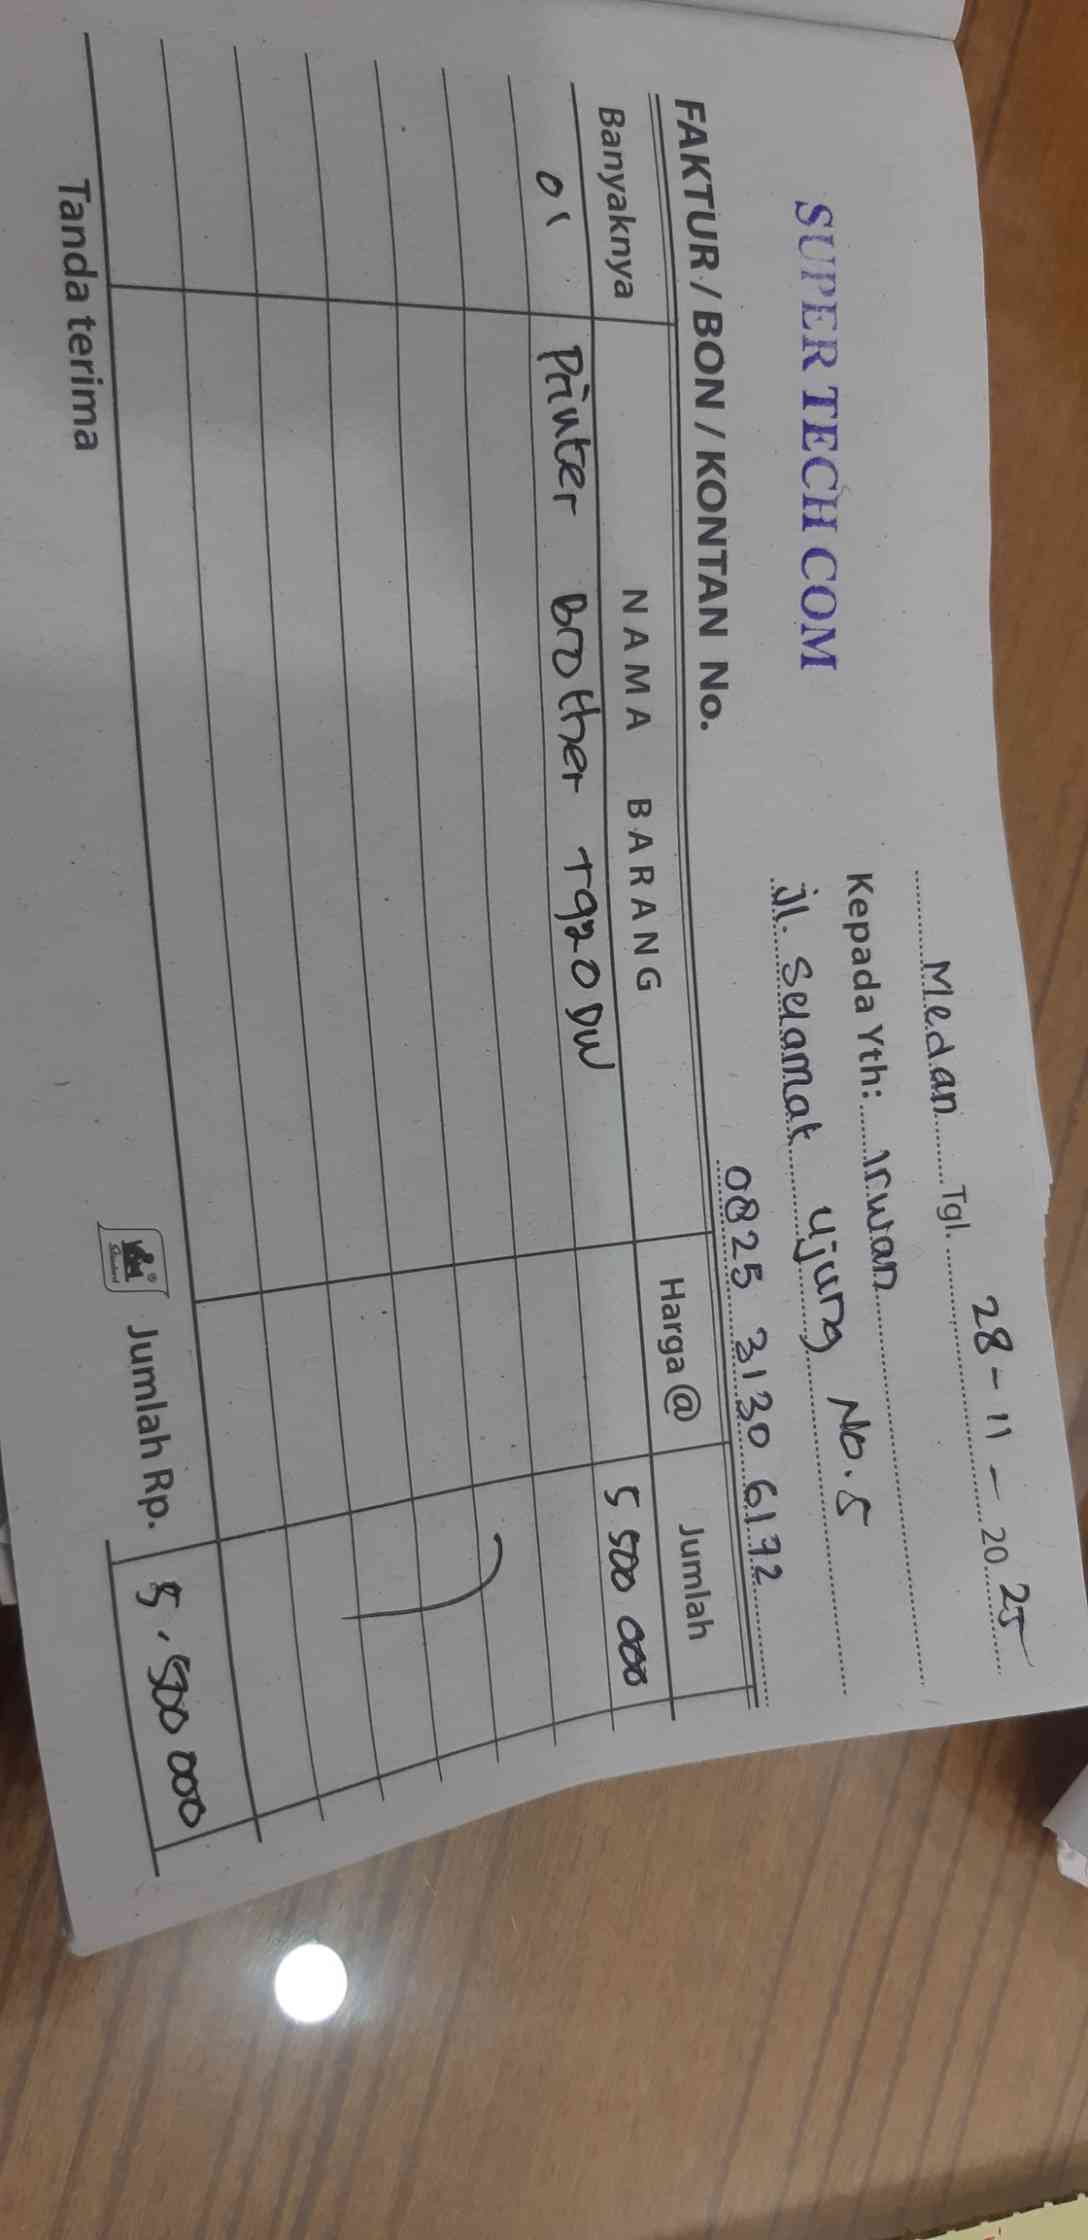 SUPER TECH COM
Medan Tgl. 28 - 11 - 20 25
Kepada Yth: Irwan
jl. Selamat ujung No. 5
0825 3130 6172
FAKTUR / BON / KONTAN No.
Banyaknya NAMA BARANG Harga @ Jumlah
01 Printer Brother T920 DW 5 500 000
Tanda terima Jumlah Rp. 5.500 000